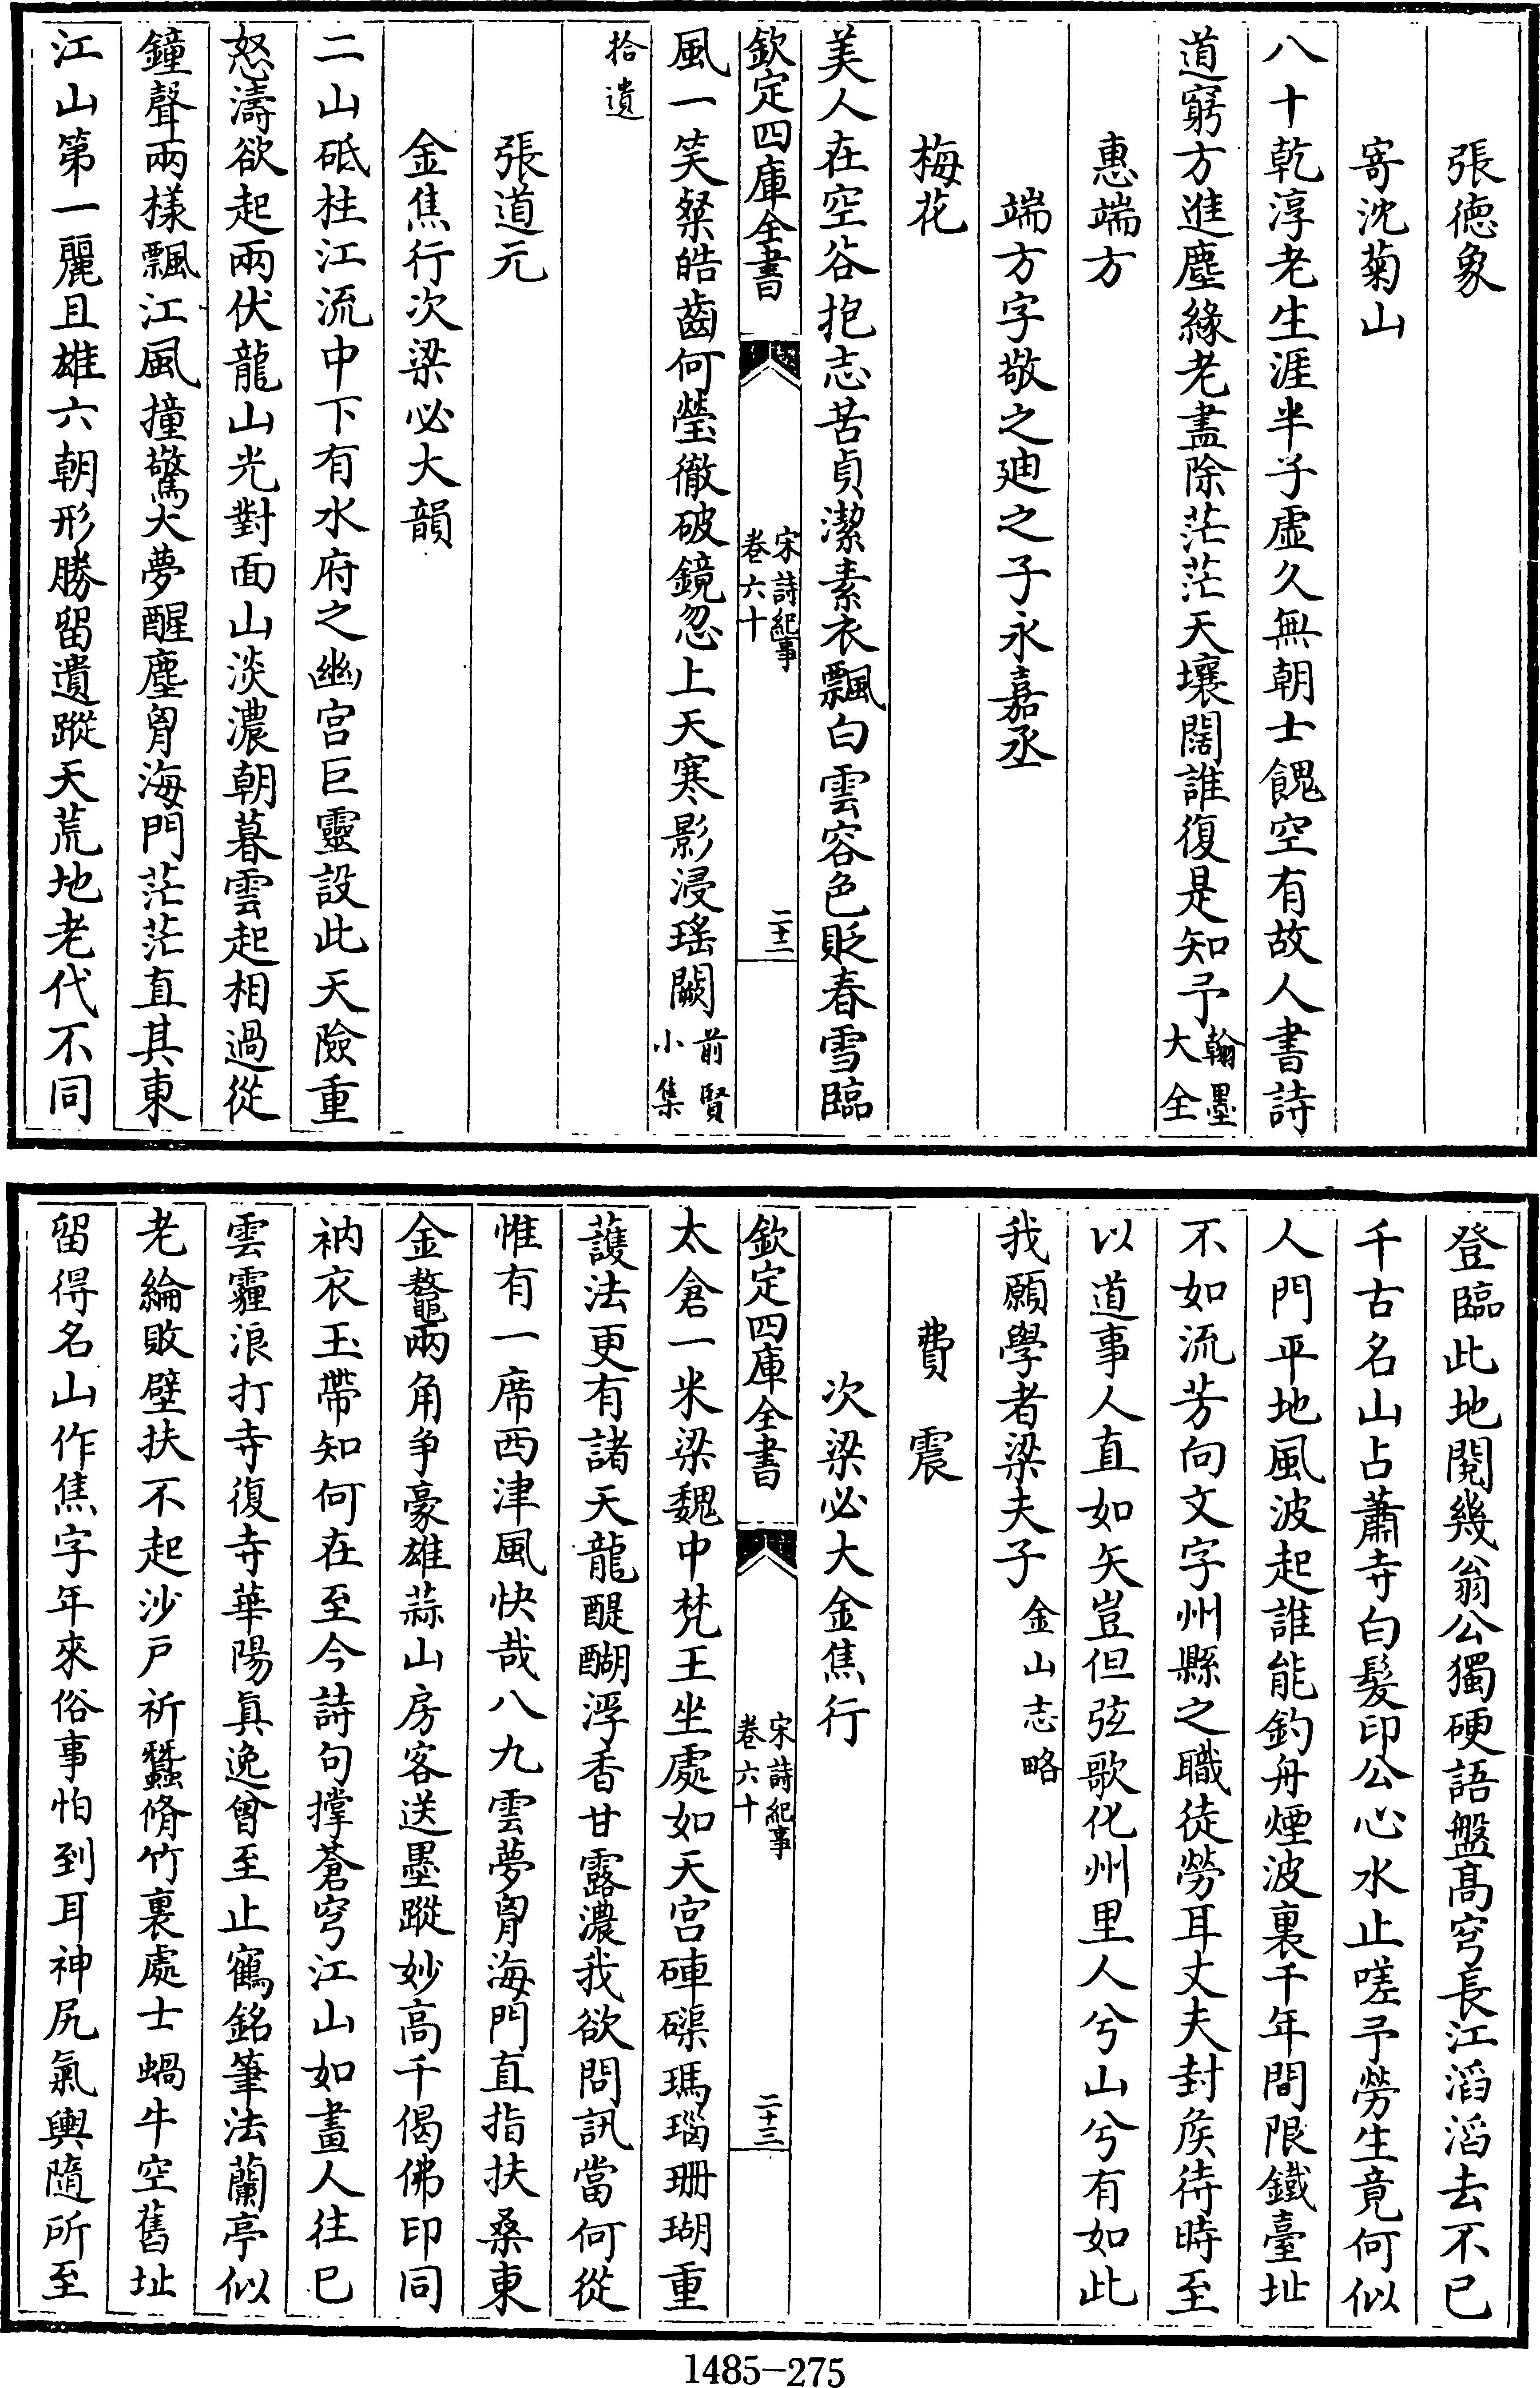 張徳象
寄沈菊山
八十乾淳老生涯半子虛久無朝士餽空有故人書詩
道窮方進塵緣老盡除茫茫天壤闊誰復是知予翰墨大全
惠端方
端方字敬之廸之子永嘉丞
梅花
美人在空谷抱志苦貞潔素衣飄白雲容色貶春雪臨
欽定四庫全書 宋詩紀事卷六十 二十二
風一笑粲皓齒何瑩徹破鏡忽上天寒影浸瑤闕前賢小集
拾遺
張道元
金焦行次梁必大韻
二山砥柱江流中下有水府之幽宮巨靈設此天險重
怒濤欲起兩伏龍山光對面山淡濃朝暮雲起相過從
鐘聲兩樣飄江風撞驚大夢醒塵胷海門茫茫直其東
江山第一麗且雄六朝形勝留遺蹤天荒地老代不同
登臨此地閱幾翁公獨硬語盤髙穹長江滔滔去不已
千古名山占蕭寺白髮印公心水止嗟予勞生竟何似
人門平地風波起誰能釣舟煙波裏千年間限鐵臺址
不如流芳向文字州縣之職徒勞耳丈夫封矦待時至
以道事人直如矢豈但弦歌化州里人兮山兮有如此
我願學者梁夫子金山志略
費震
次梁必大金焦行
欽定四庫全書 宋詩紀事卷六十 二十三
太倉一米梁魏中梵王坐處如天宮硨磲瑪瑙珊瑚重
護法更有諸天龍醍醐浮香甘露濃我欲問訊當何從
惟有一席西津風快哉八九雲夢胷海門直指扶桑東
金鼇兩角爭豪雄蒜山房客送墨蹤妙高千偈佛印同
衲衣玉帶知何在至今詩句撑蒼穹江山如畫人往已
雲霾浪打寺復寺華陽眞逸曾至止鶴銘筆法蘭亭似
老綸敗壁扶不起沙戶祈蠶脩竹裏處士蝸牛空舊址
留得名山作焦字年來俗事怕到耳神尻氣輿隨所至
1485-275